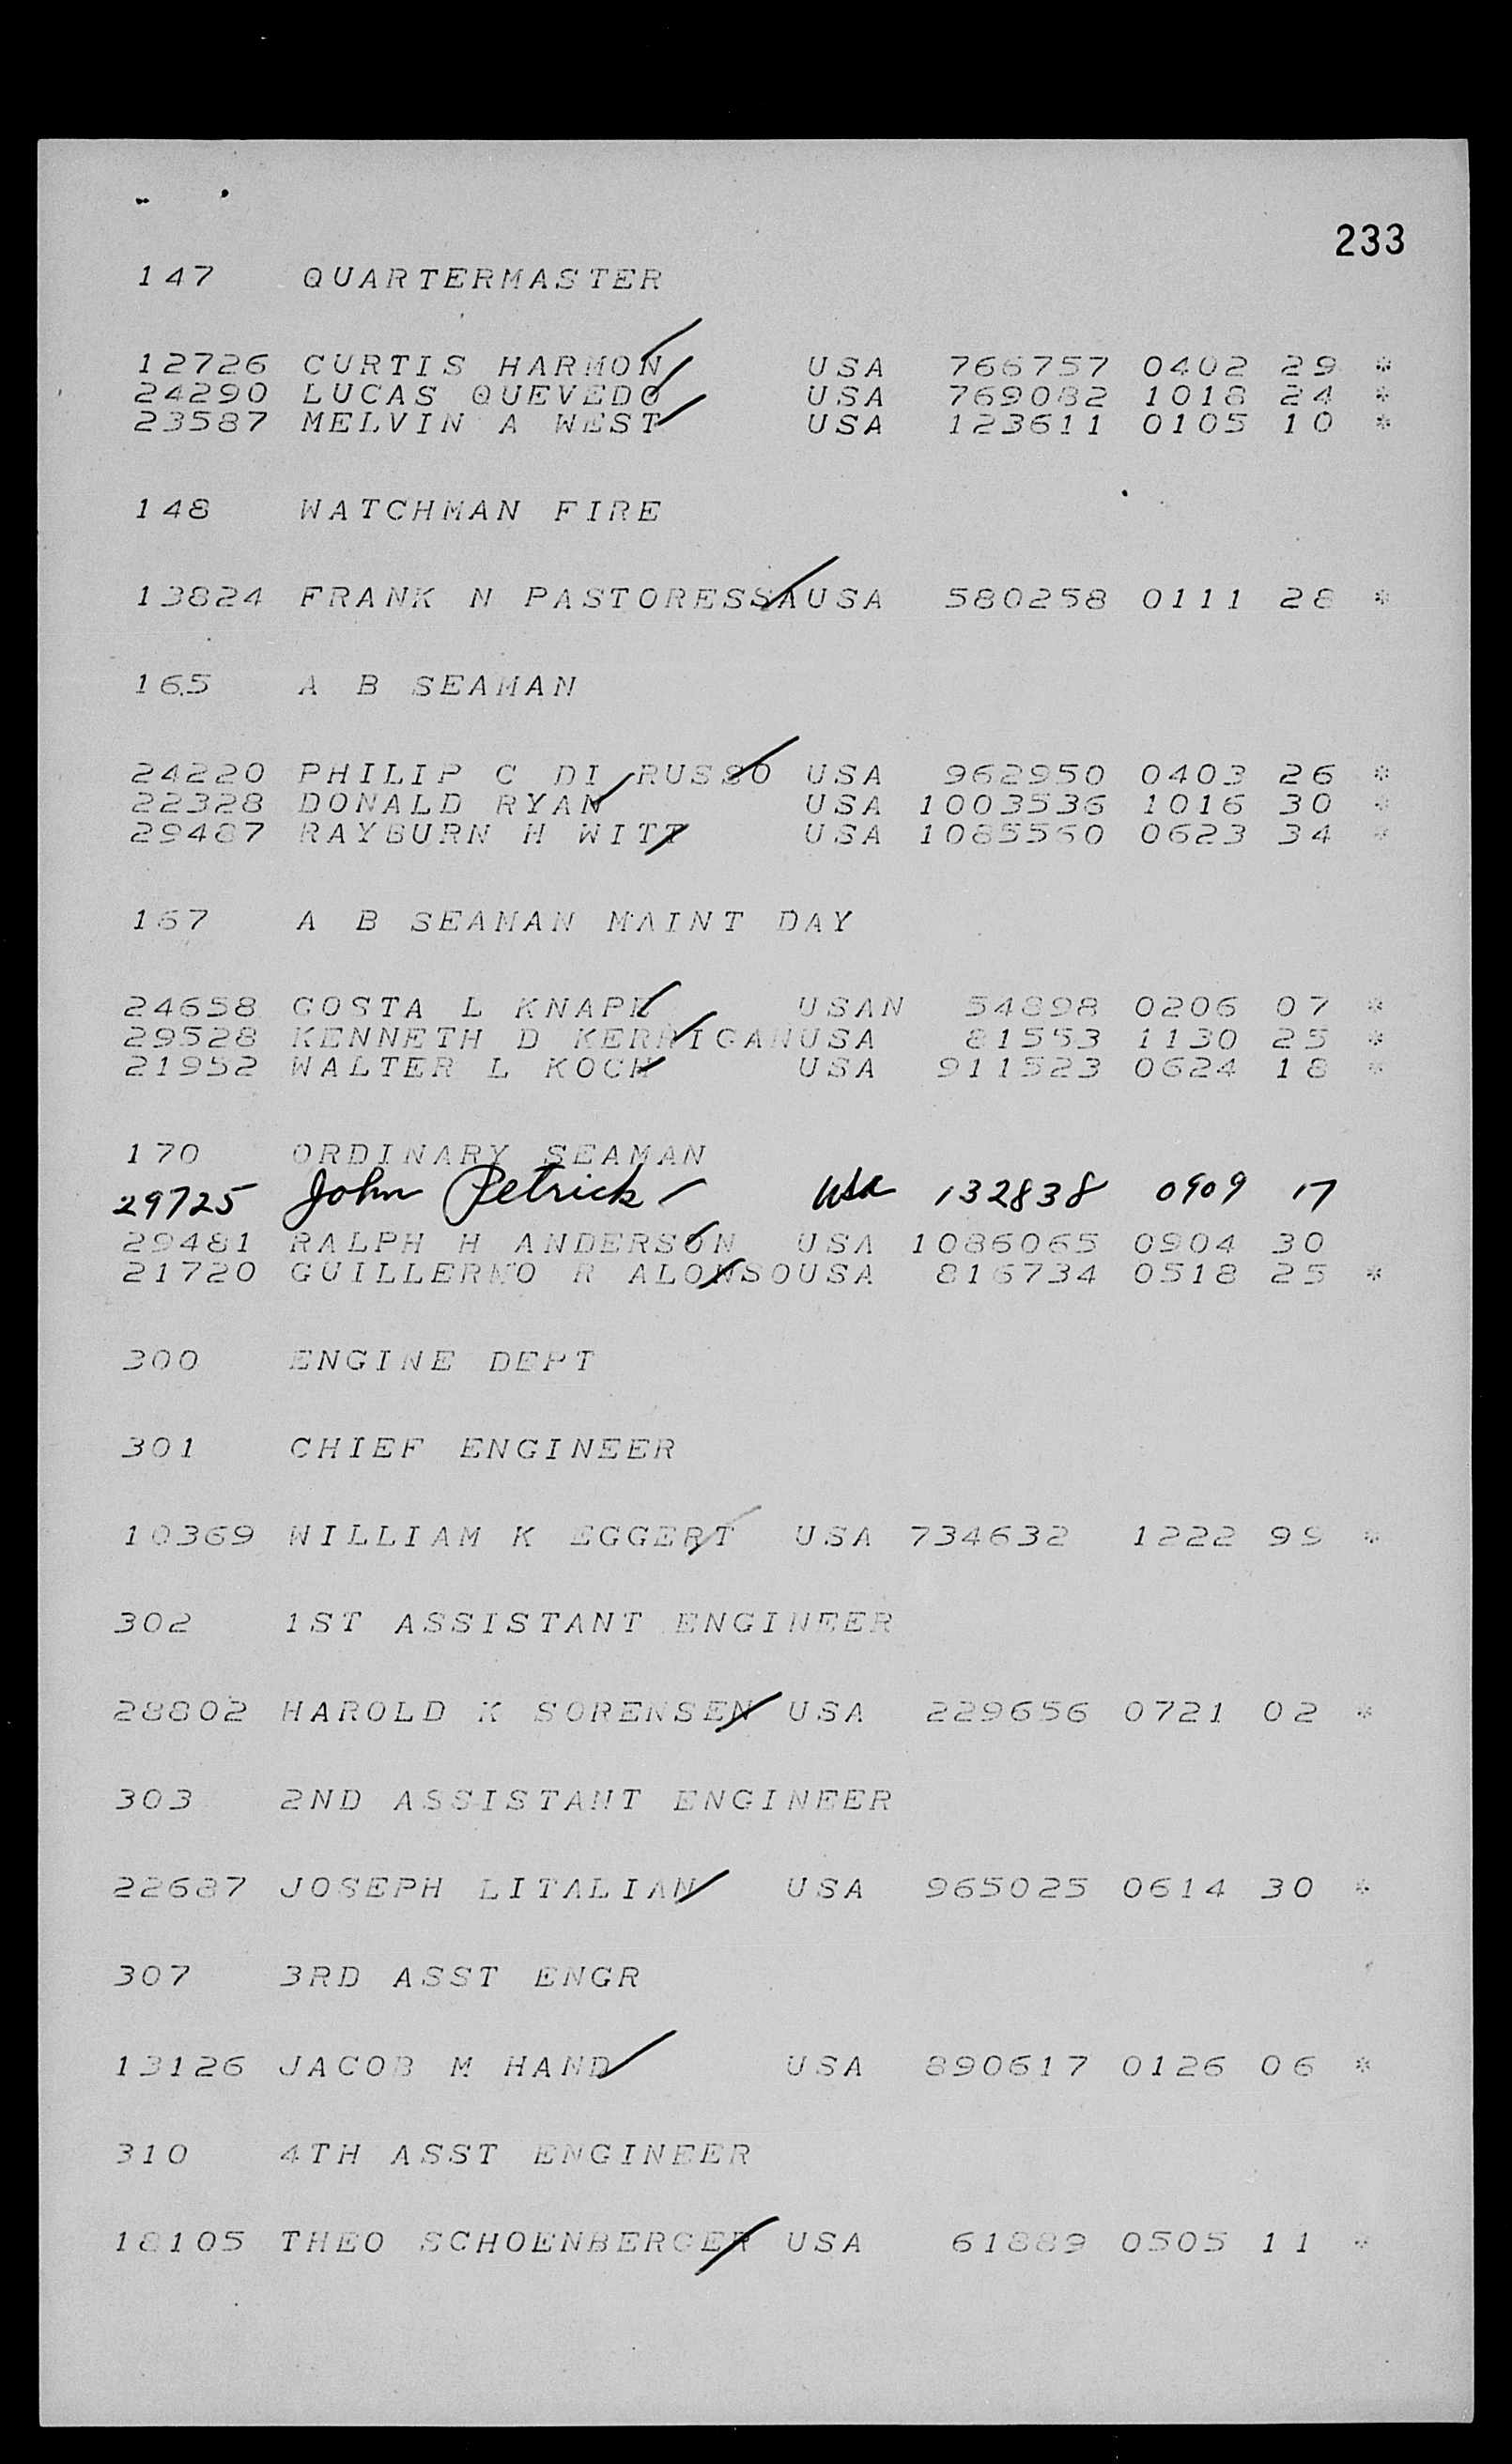 233
147 QUARTERMASTER
12726 CURTIS HARMON USA 766757 0402 29 *
24290 LUCAS QUEVEDO USA 769082 1018 24 *
23587 MELVIN A WEST USA 123611 0105 10 *
148 WATCHMAN FIRE
13824 FRANK N PASTORESSAUSA 580258 0111 28 *
165 A B SEAMAN
24220 PHILIP C DI RUSSO USA 962950 0403 26 *
22328 DONALD RYAN USA 1003536 1016 30 *
29487 RAYBURN H WITT USA 1085560 0623 34 *
167 A B SEAMAN MAINT DAY
24658 GOSTA L KNAPE USAN 54898 0206 07 *
29528 KENNETH D KERRIGANUSA 81553 1130 25 *
21952 WALTER L KOCH USA 911523 0624 18 *
170 ORDINARY SEAMAN
29725 John Petrick USA 132838 0909 17
29481 RALPH H ANDERSON USA 1086065 0904 30
21720 GUILLERMO R ALONSOUSA 816734 0518 25 *
300 ENGINE DEPT
301 CHIEF ENGINEER
10369 WILLIAM K EGGERT USA 734632 1222 99 *
302 1ST ASSISTANT ENGINEER
28802 HAROLD K SORENSEN USA 229656 0721 02 *
303 2ND ASSISTANT ENGINEER
22687 JOSEPH LITALIAN USA 965025 0614 30 *
307 3RD ASST ENGR
13126 JACOB M HAND USA 890617 0126 06 *
310 4TH ASST ENGINEER
18105 THEO SCHOENBERGER USA 61889 0505 11 *